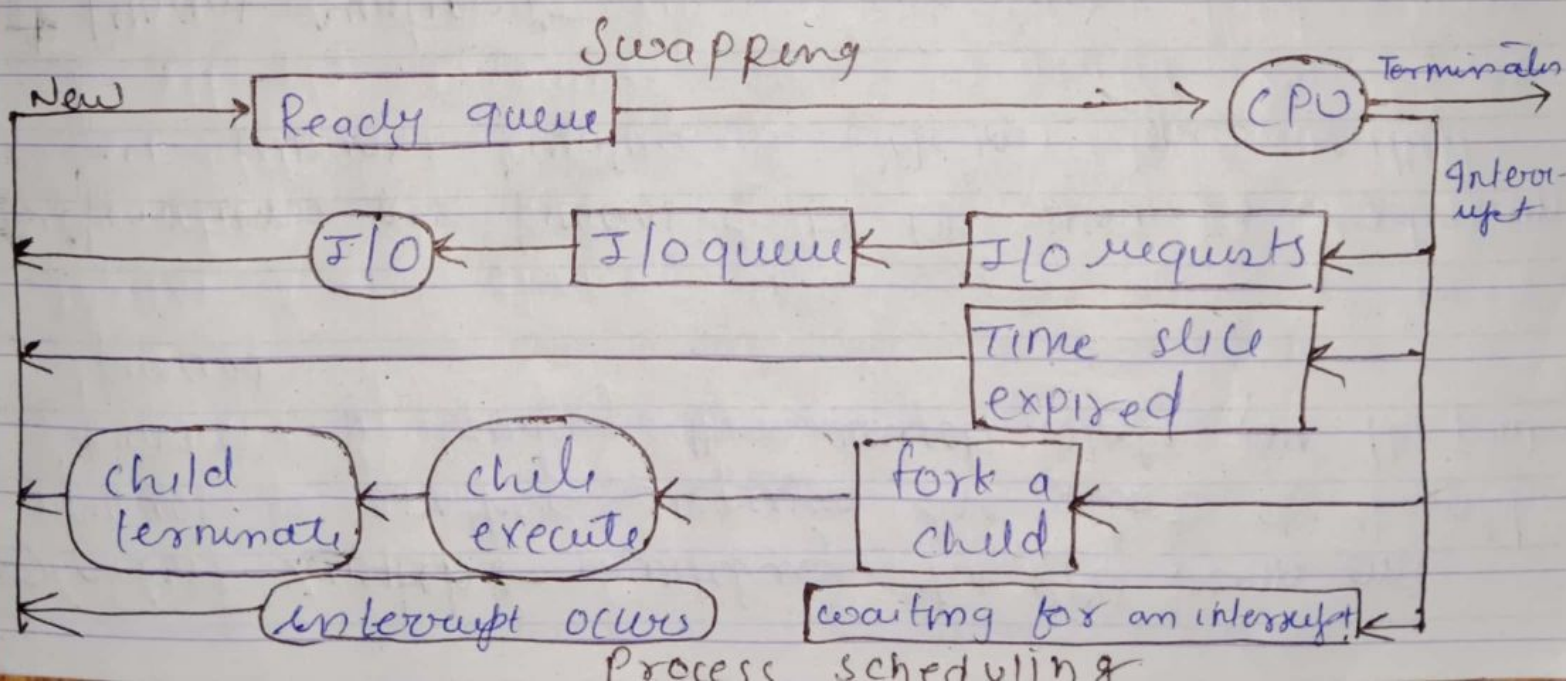 Swapping
New
Ready queue
CPU
Terminates
Interr-
upt
I/O
I/O queue
I/O requests
Time slice
expired
child
terminate
chile
execute
fork a
child
interrupt ocurs
waiting for an interrupt
Process scheduling